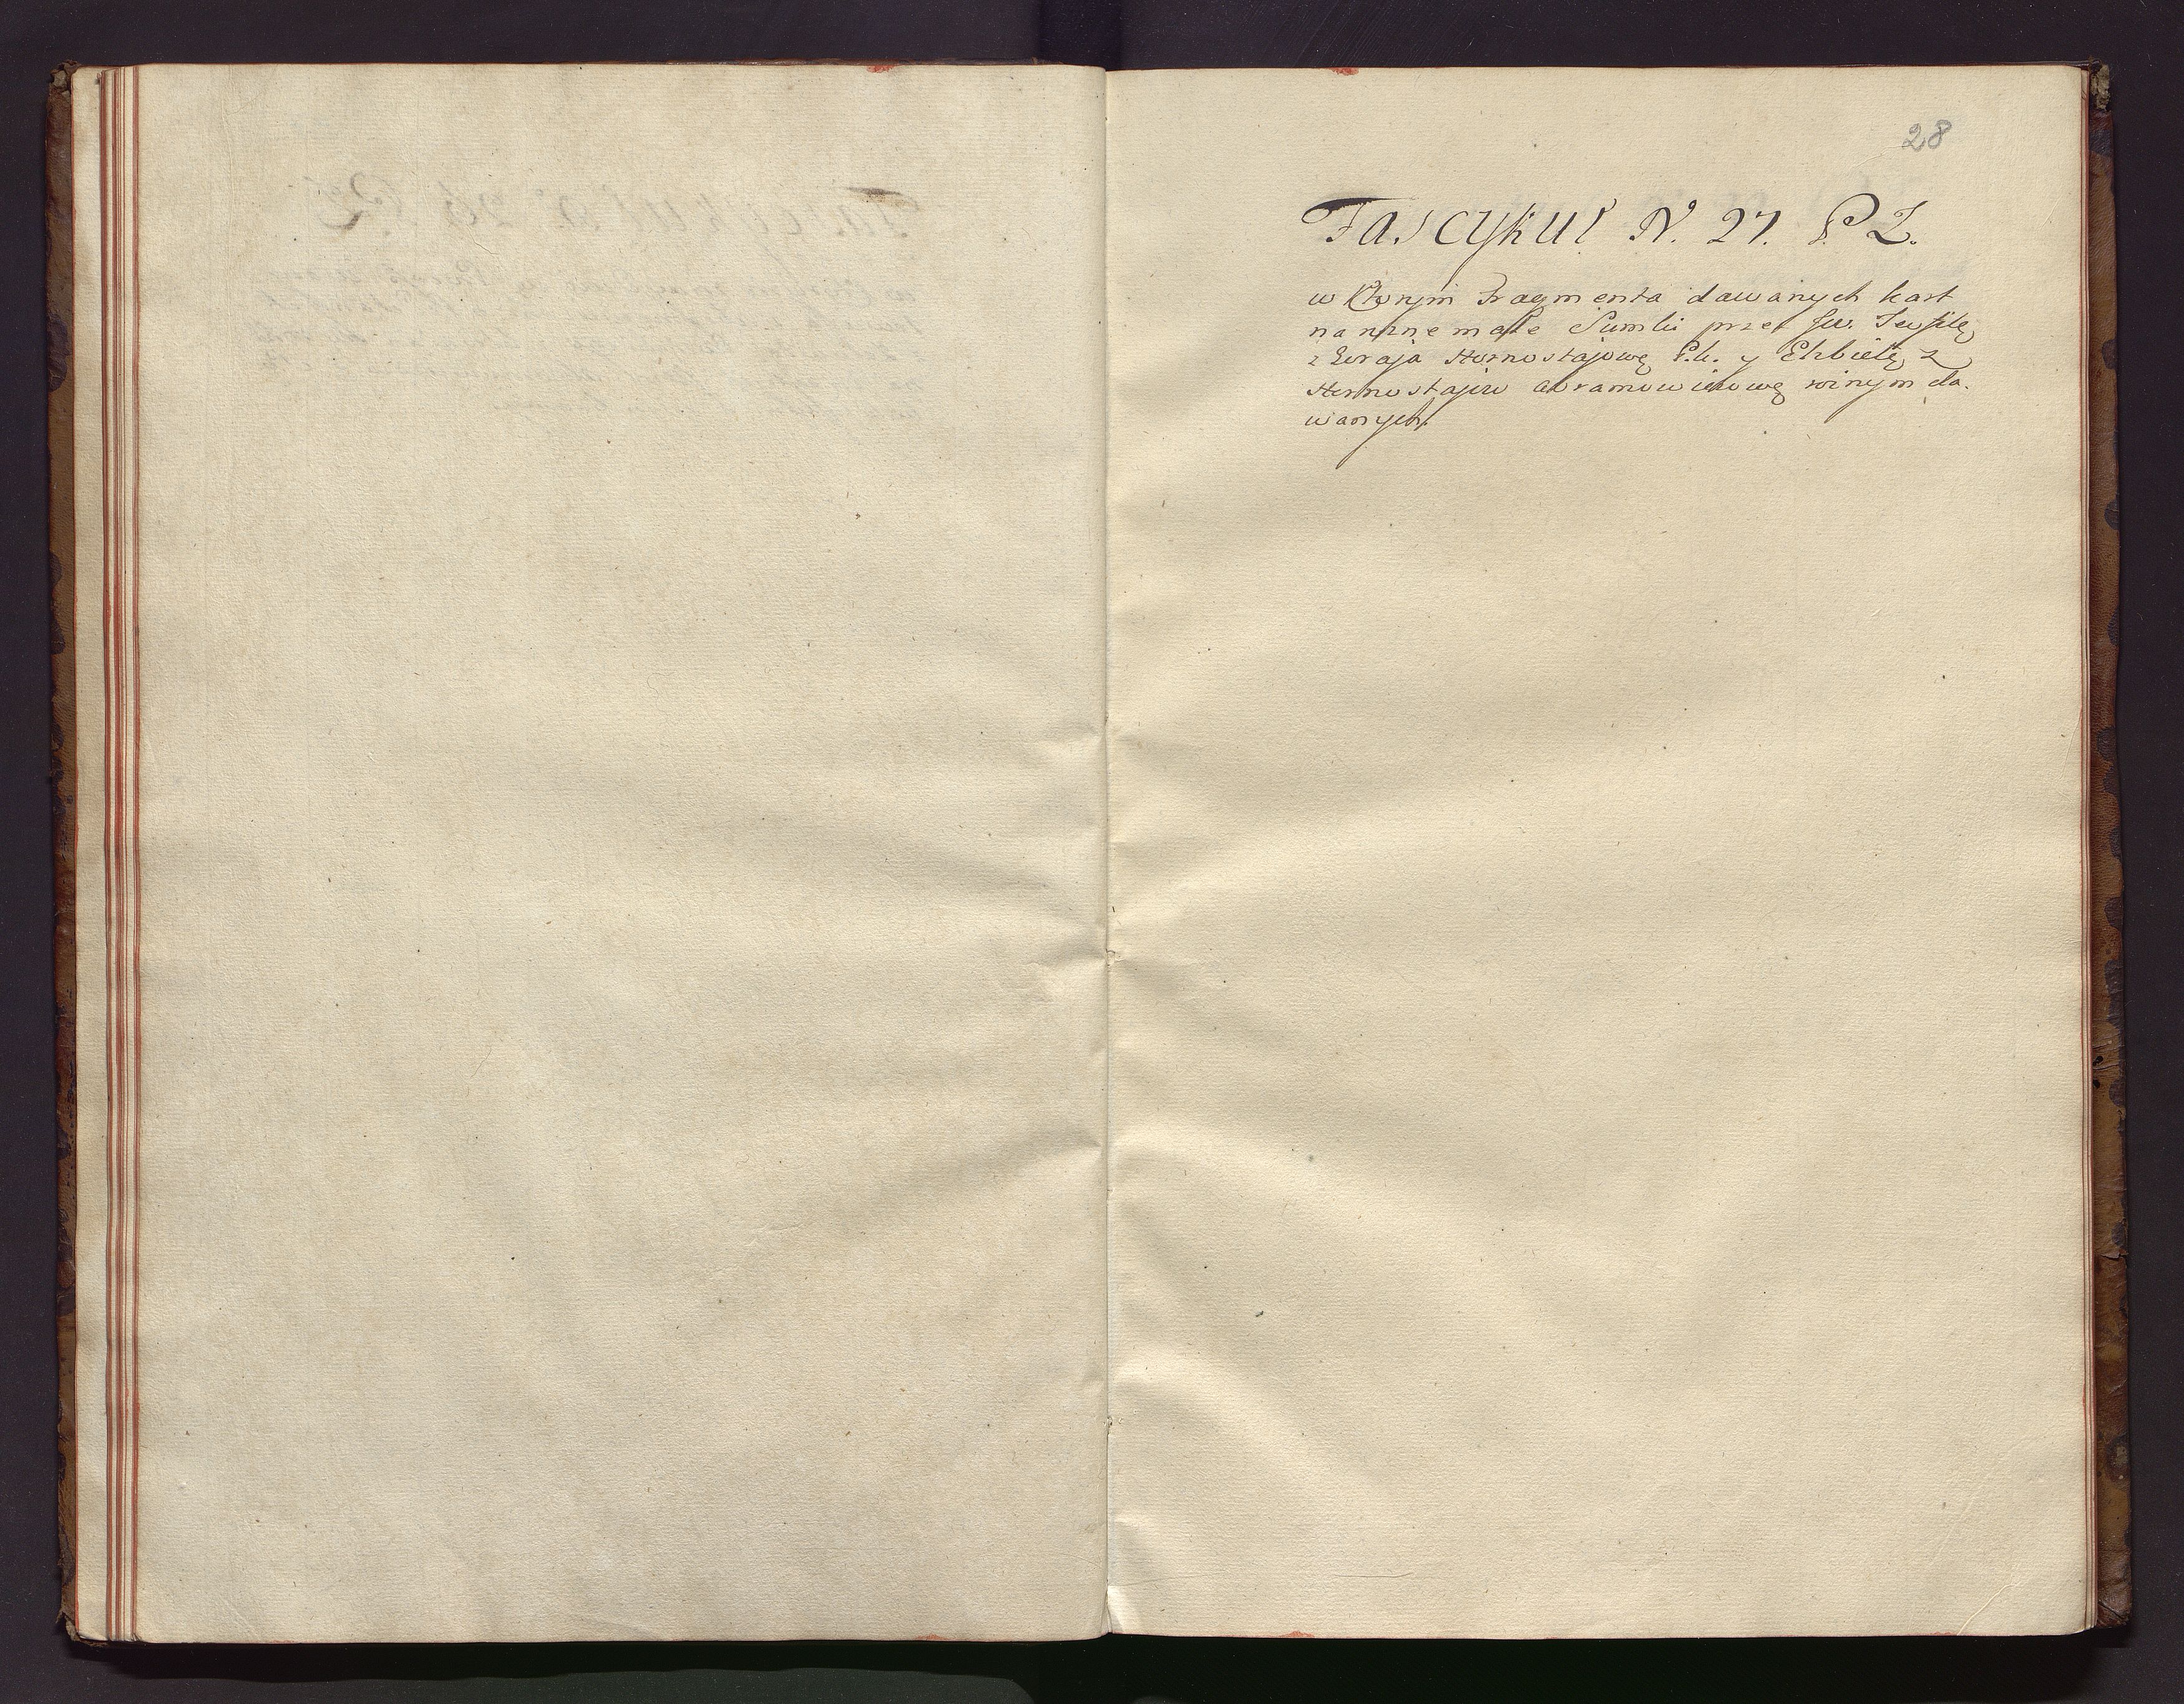 28
Fascykuł N. 27. P Z.
w Którym Fragmenta dawanych kart
na rozne małe Sumki przez Jw.
z Zoraja Hornostajowę P.k. y Elzbietę z
Hornostajów Abramowiczowę roznym da.
wanych